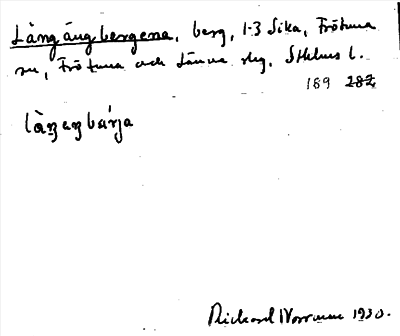 Långängbergena, berg, 1-3 Sika, Frötuna
sn, Frötuna och Länna skg, Sthlms l.
189 282
làŋɛŋbærja
Rickard Norrman 1930.